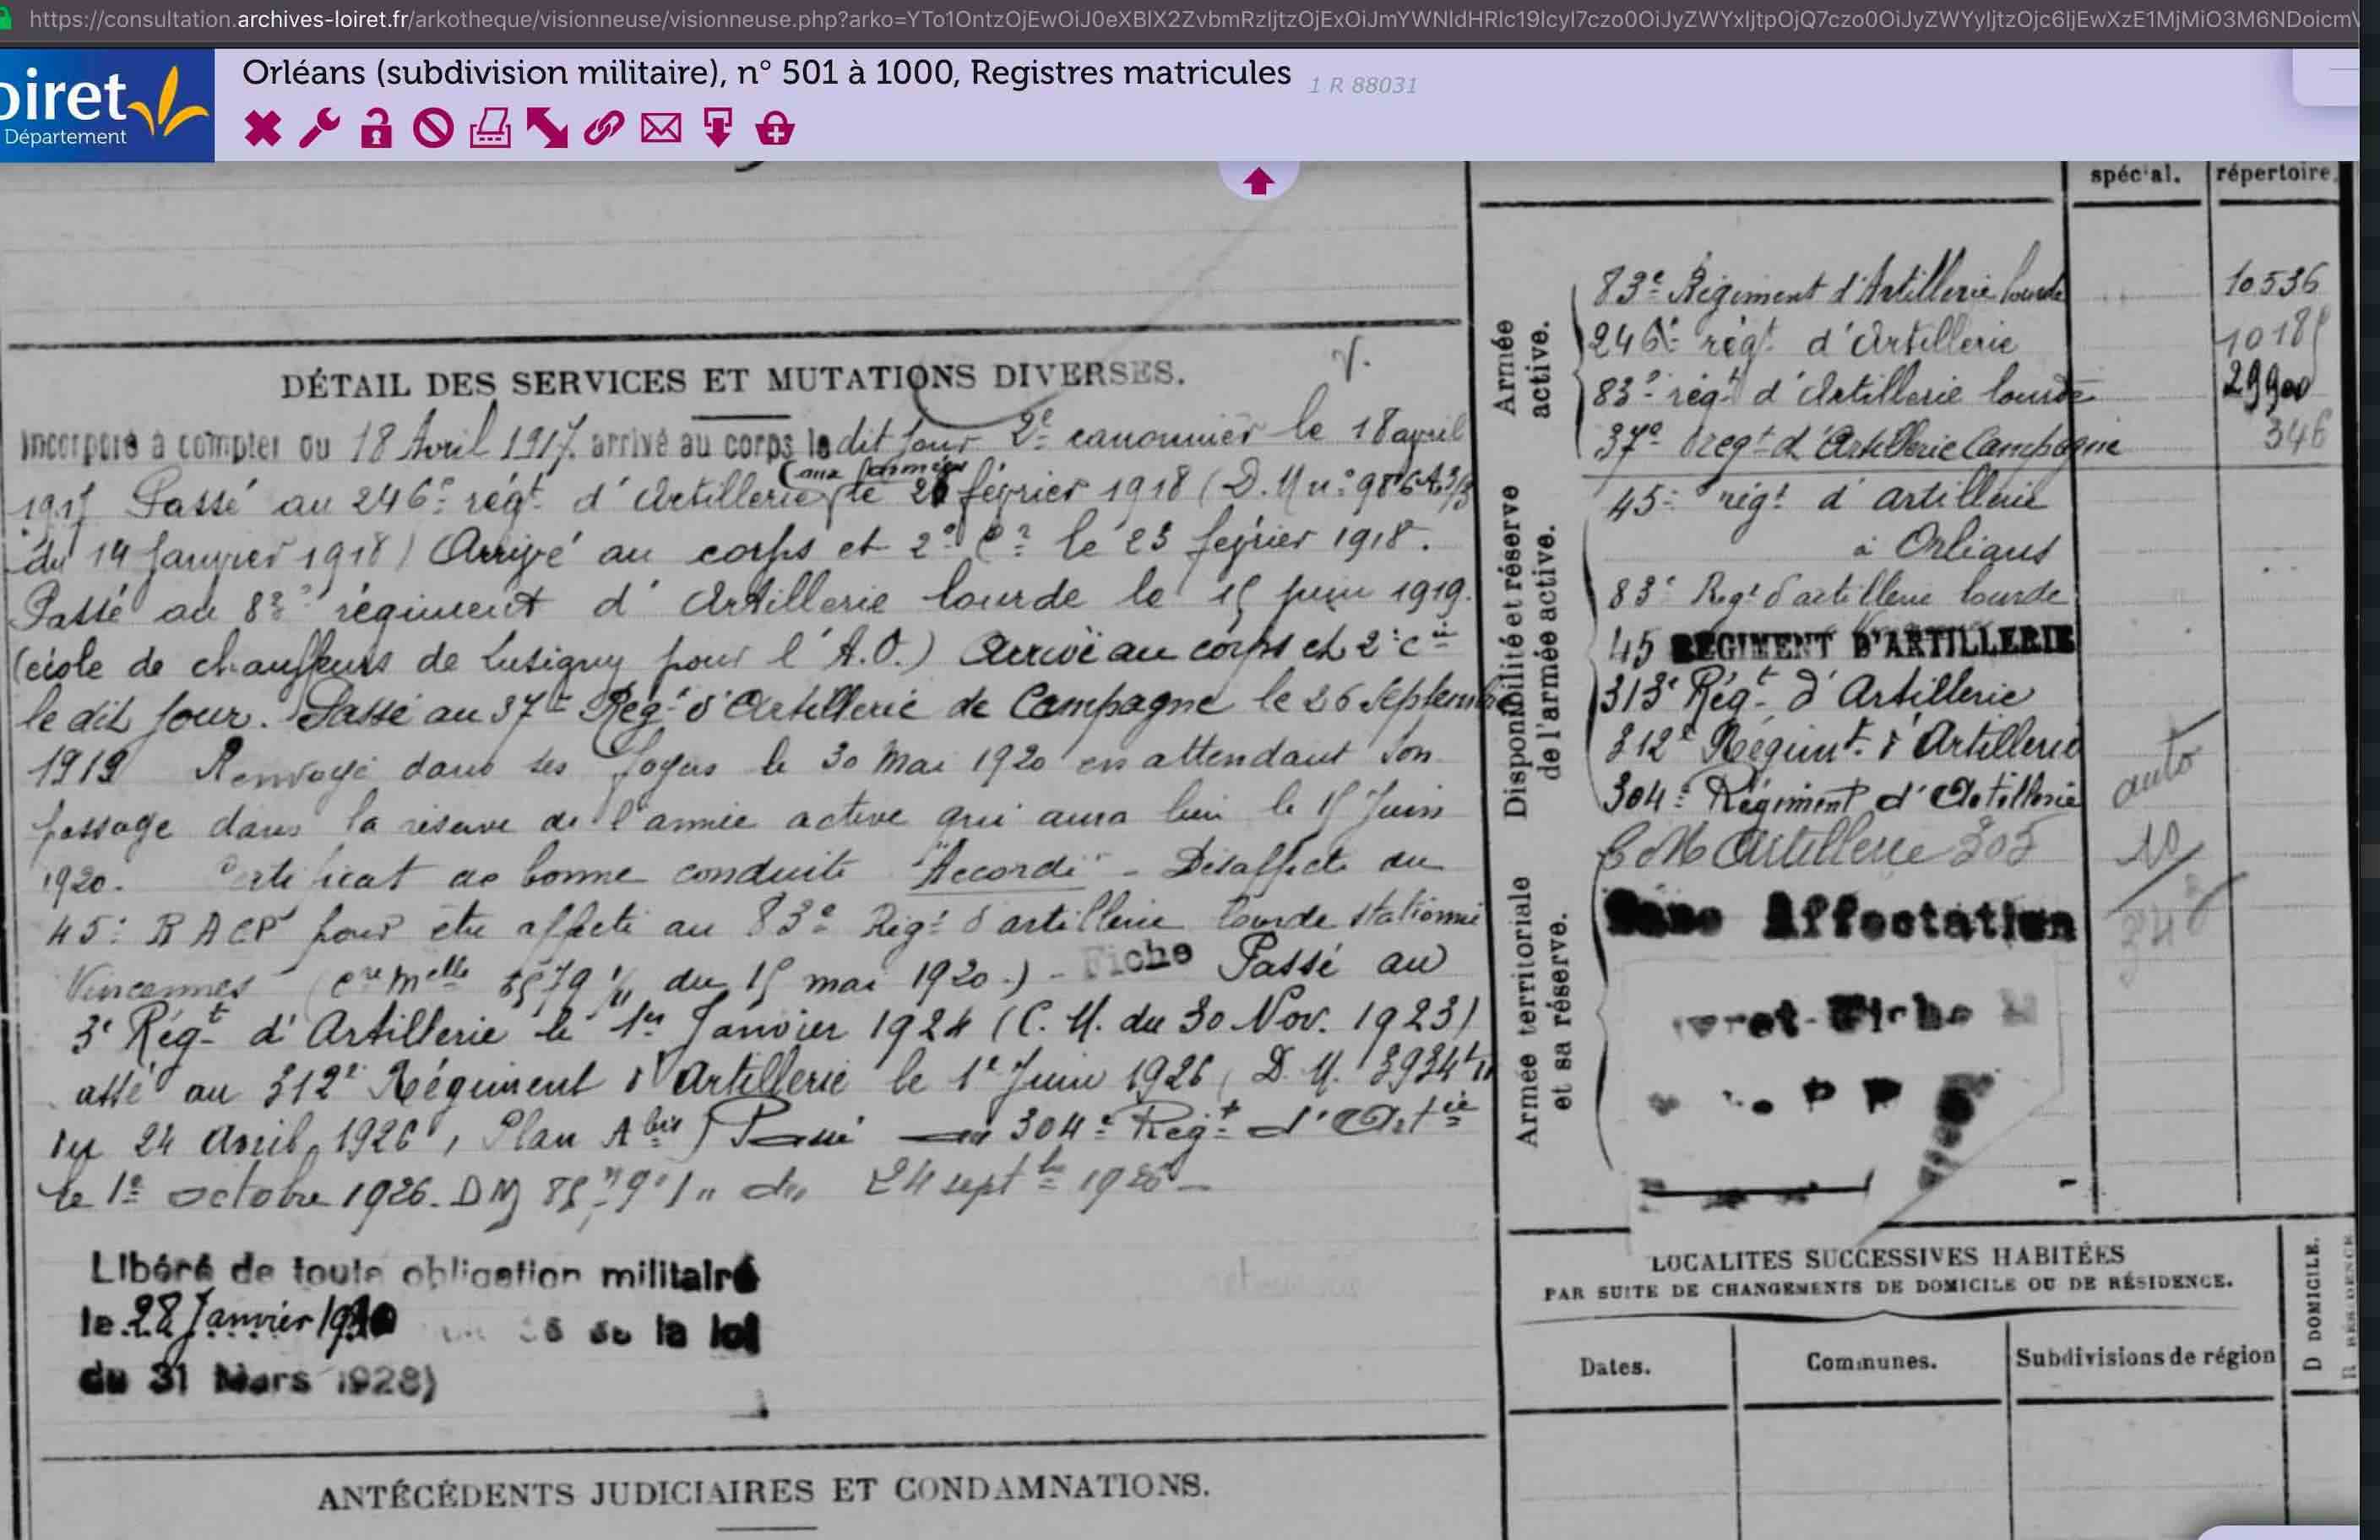 https://consultation.archives-loiret.fr/arkotheque/visionneuse/visionneuse.php?arko=
oiret
Département
Orléans (subdivision militaire), n° 501 à 1000, Registres matricules 1 R 88031
spécial. répertoire.
DÉTAIL DES SERVICES ET MUTATIONS DIVERSES.
Incorporé à compter du 18 Avril 1917. arrivé au corps le dit jour 2e canonnier le 18 avril
(aux armées)
1917 Passé au 246e régt d'Artillerie le février 1918 (D.M n°
du 14 Janvier 1918) Arrivé au corps et 2e Cr le 23 février 1918.
Passé au 83e régiment d'Artillerie lourde le 15 juin 1919.
(école de chauffeurs de Lusigny pour l'A.O.) Arrivé au corps et 2e cr
le dit jour. Passé au 37e Régt d'Artillerie de Campagne le 26 Septembre
1919 Renvoyé dans ses foyers le 30 Mai 1920 en attendant son
passage dans la réserve de l'armée active qui aura lieu le 15 Juin
1920. Certificat de bonne conduite "Accordé" - Désaffecté du
45e RACP pour être affecté au 83e Régt d'artillerie lourde stationné
Vincennes (Cre Melle du 15 mai 1920.) - Fiche Passé au
3e Régt d'Artillerie le 1er Janvier 1924 (C. M. du 30 Nov. 1923)
assé au 312e Régiment d'Artillerie le 1er Juin 1926, D. M. 3934
du 24 Avril 1926, Plan A bis) Passé au 304e Régt d'Artie
le 1er octobre 1926. DM du 24 septbre 1926 -
Libéré de toute obligation militaire
le 28 Janvier de la loi
du 31 Mars 1928)
ANTÉCÉDENTS JUDICIAIRES ET CONDAMNATIONS.
Armée active.
83e Régiment d'Artillerie lourde 10536
246e régt d'Artillerie
83e régt d'Artillerie lourde 29900
37e Régt d'Artillerie Campagne 346
Disponibilité et réserve de l'armée active.
45e régt d'artillerie
à Orléans
83e Regt d'artillerie lourde
45 REGIMENT D'ARTILLERIE
313e Régt d'Artillerie
312e Régimt d'Artillerie
304e Régiment d'Artillerie auto
C M Artillerie 305 10
Armée territoriale et sa réserve.
Sans Affectation
LOCALITES SUCCESSIVES HABITÉES
PAR SUITE DE CHANGEMENTS DE DOMICILE OU DE RÉSIDENCE.
Dates. Communes. Subdivisions de région
D DOMICILE.
R RÉSIDENCE